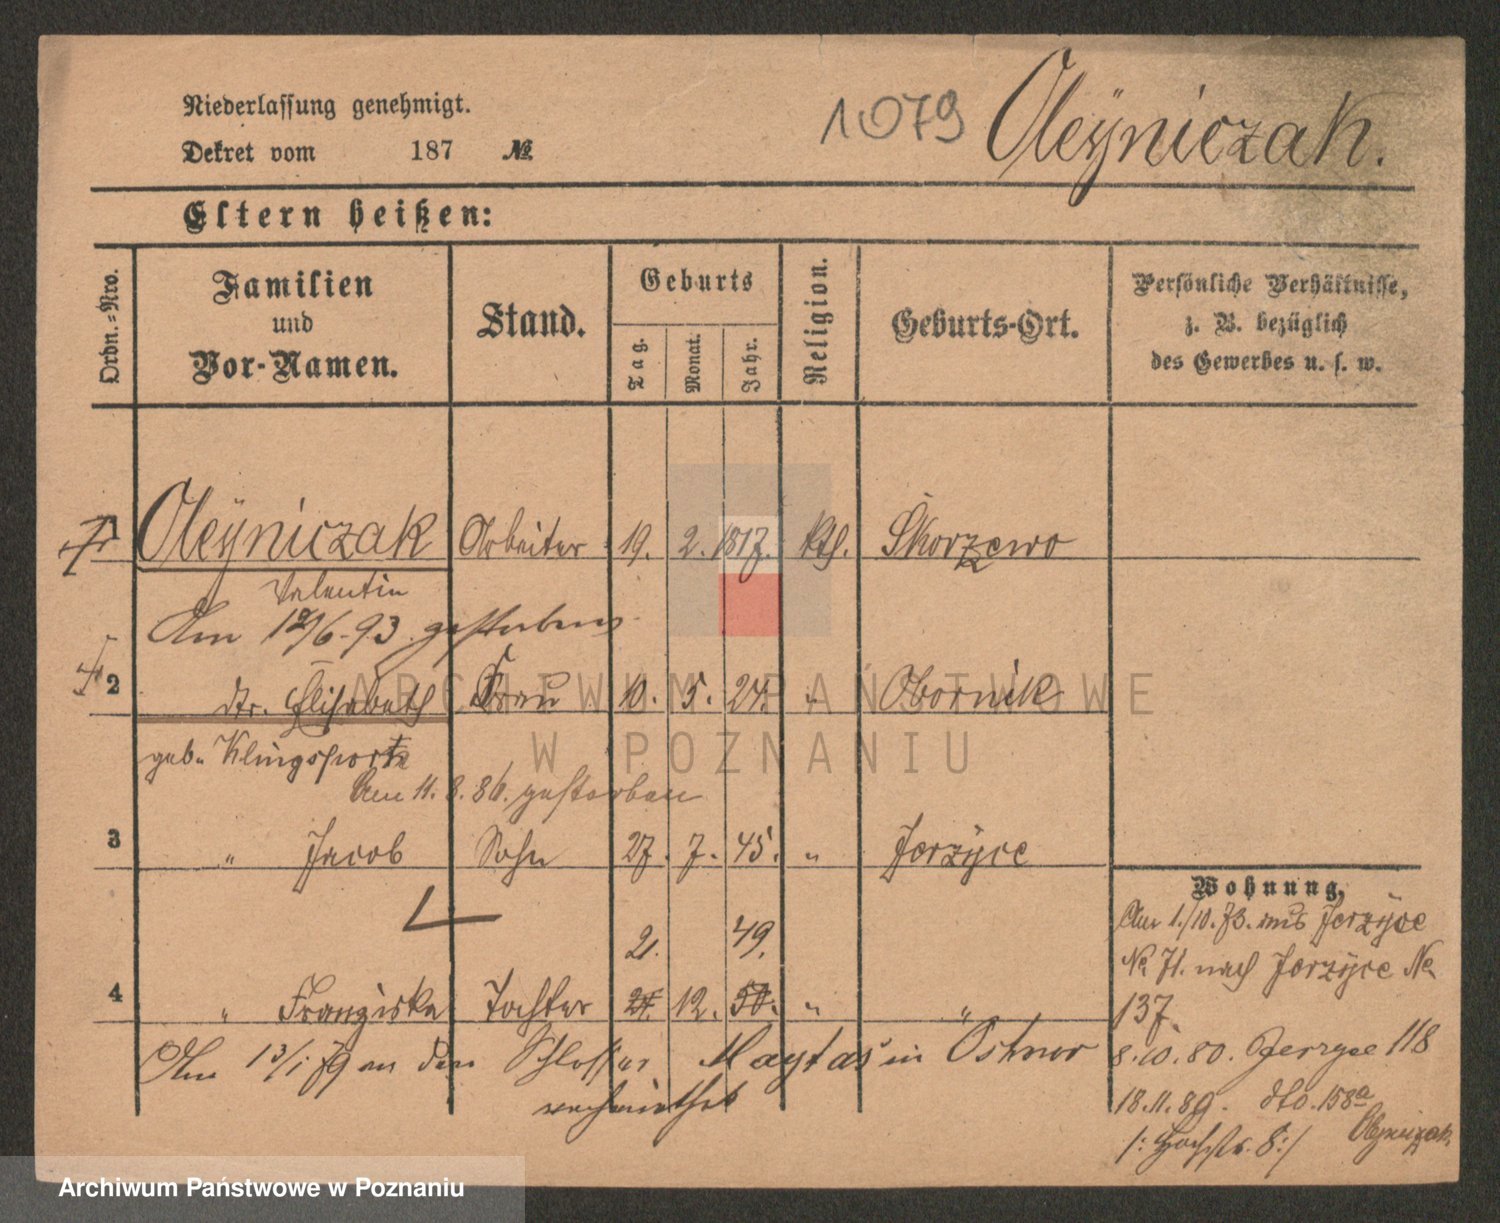 Niederlassung genehmigt.
Dekret vom 187 №
1079 Oleÿniczak.
Eltern heißen:
Ordn.-Nro.
Familien und Vor-Namen.
Stand.
Geburts
Tag.
Monat.
Jahr.
Religion.
Geburts-Ort.
Persönliche Verhältnisse,
z. B. bezüglich
des Gewerbes u. s. w.
1 Oleÿniczak Arbeiter 19. 2. 1817. kth. Skorzewo
Valentin
Am 12/6.93. gestorben
2 dto. Elisabeth Frau 10. 5. 24. " Obornik
geb. Klingsporte
Am 11.8.86. gestorben
3 " Jacob Sohn 27. 7. 45. " Jerzÿce
21. 49.
4 " Franziska Tochter 12. " "
Am 13/1 79 an den Schlosser Maytas in Ostrow
verheirathet
Wohnung,
Am 1./10.73. aus Jerzÿce
No 71. nach Jerzÿce No
137.
8.10.80. Jerzyce 118
18.11.89. dto. 158a
/: Hochstr. 8:/ Oleyniczak
ARCHIWUM PAŃSTWOWE
W POZNANIU
Archiwum Państwowe w Poznaniu